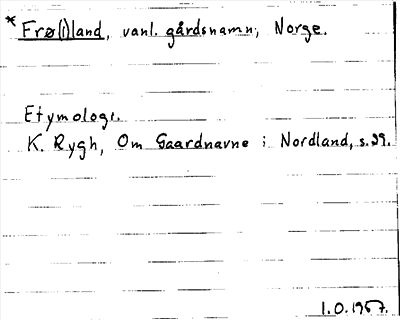 *Frø(i)land, vanl. gårdsnamn, Norge.
Etymologi.
K. Rygh, Om Gaardnavne i Nordland, s.29.
I.O. 1957.